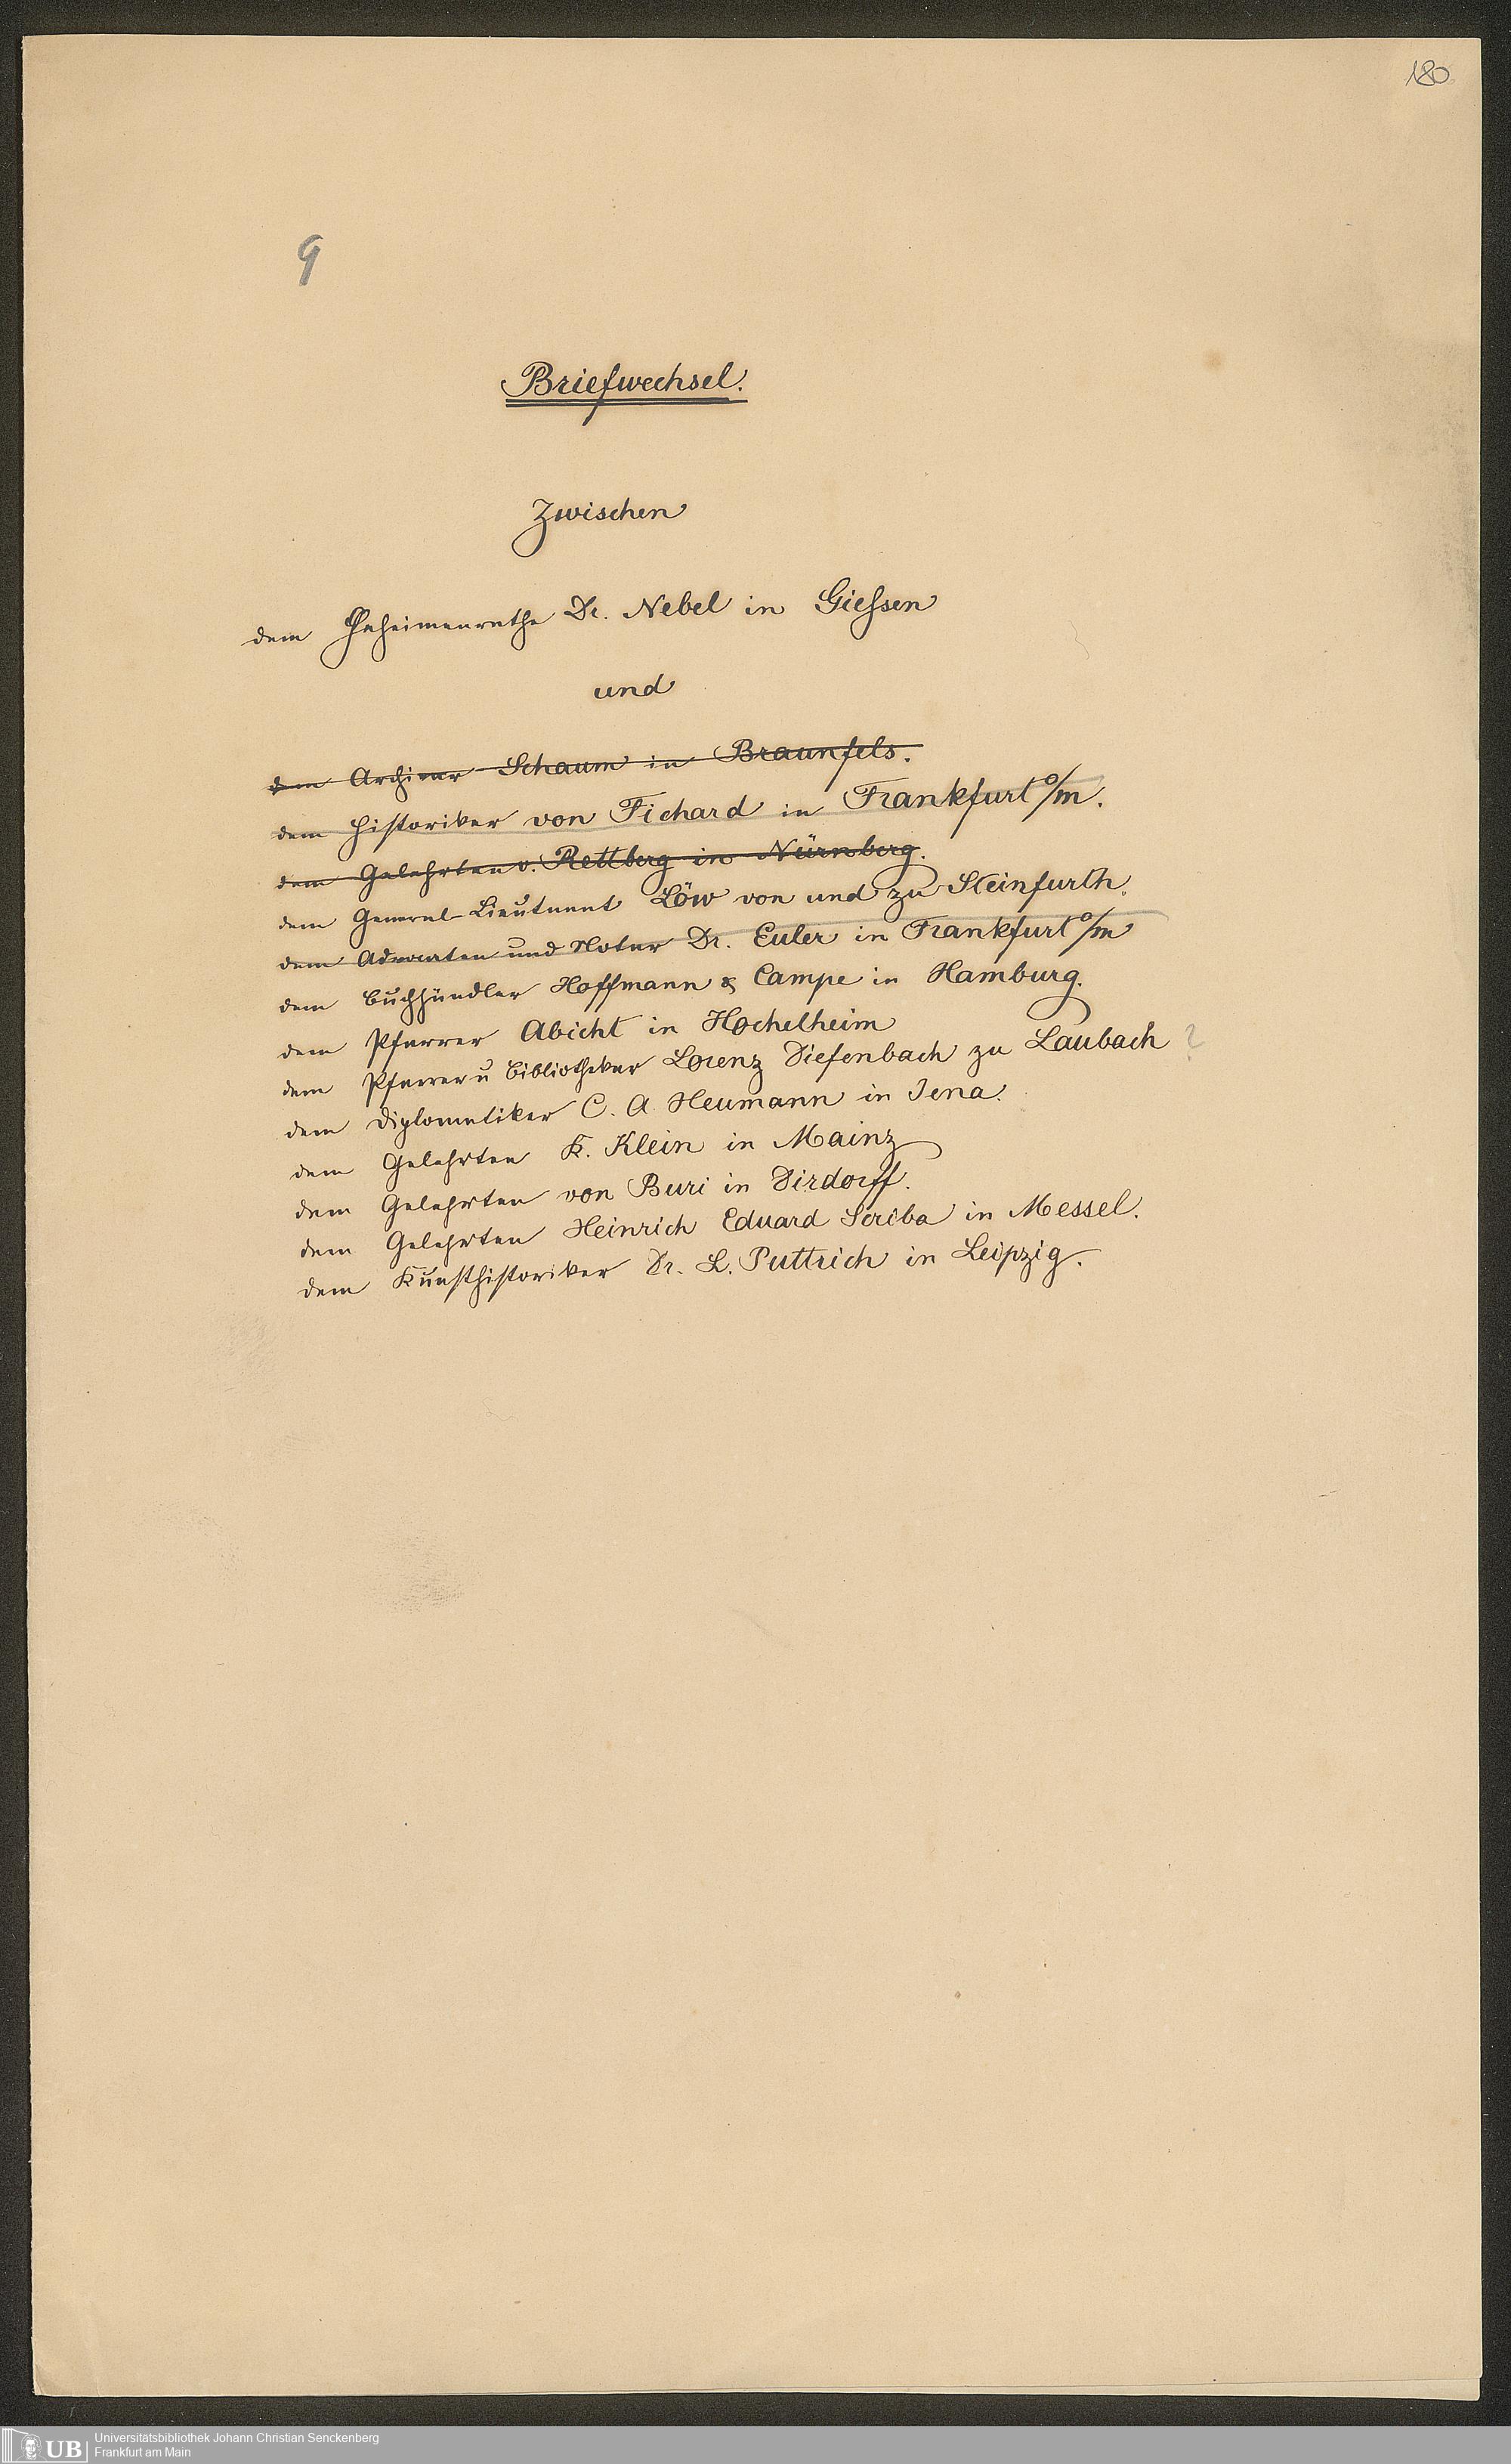 180.
9
Briefwechsel.
Zwischen
dem Geheimenrathe Dr. Nebel in Gießen
und
dem Archivar Schaum in Braunfels.
dem Historiker von Fichard in Frankfurt o/m.
dem Gelehrten v. Rettberg in Nürnberg.
dem General-Lieutnant Löw von und zu Steinfurth.
dem Advocaten und Notar Dr. Euler in Frankfurt o/m
dem Buchhändler Hoffmann & Campe in Hamburg.
dem Pfarrer Abicht in Hochelheim
dem Pfarrer u Bibliothekar Lorenz Diefenbach zu Laubach ?
dem Diplomatiker C. A. Heumann in Jena.
dem Gelehrten K. Klein in Mainz
dem Gelehrten von Buri in Dirdorff.
dem Gelehrten Heinrich Eduard Scriba in Messel.
dem Kunsthistoriker Dr. L. Puttrich in Leipzig.
UB
Universitätsbibliothek Johann Christian Senckenberg
Frankfurt am Main